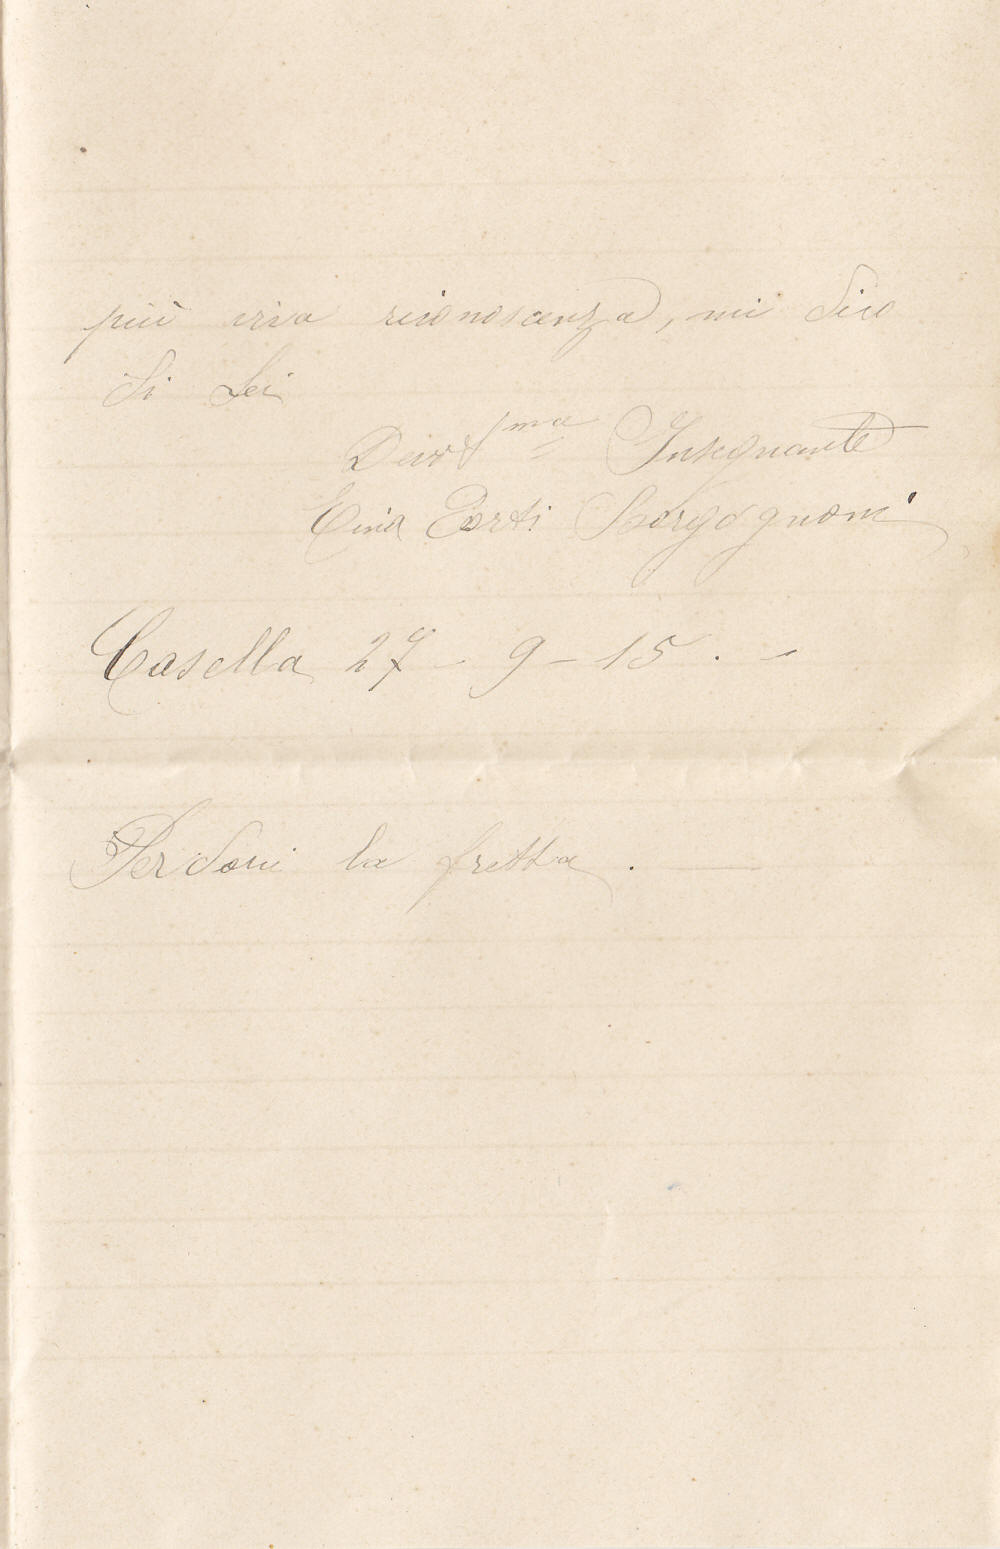 più viva riconoscenza, mi dico
di Lei
Dev.ma Insegnante
Corti Borgognoni
Casella 27 - 9 - 15 . -
Perdoni la fretta . —